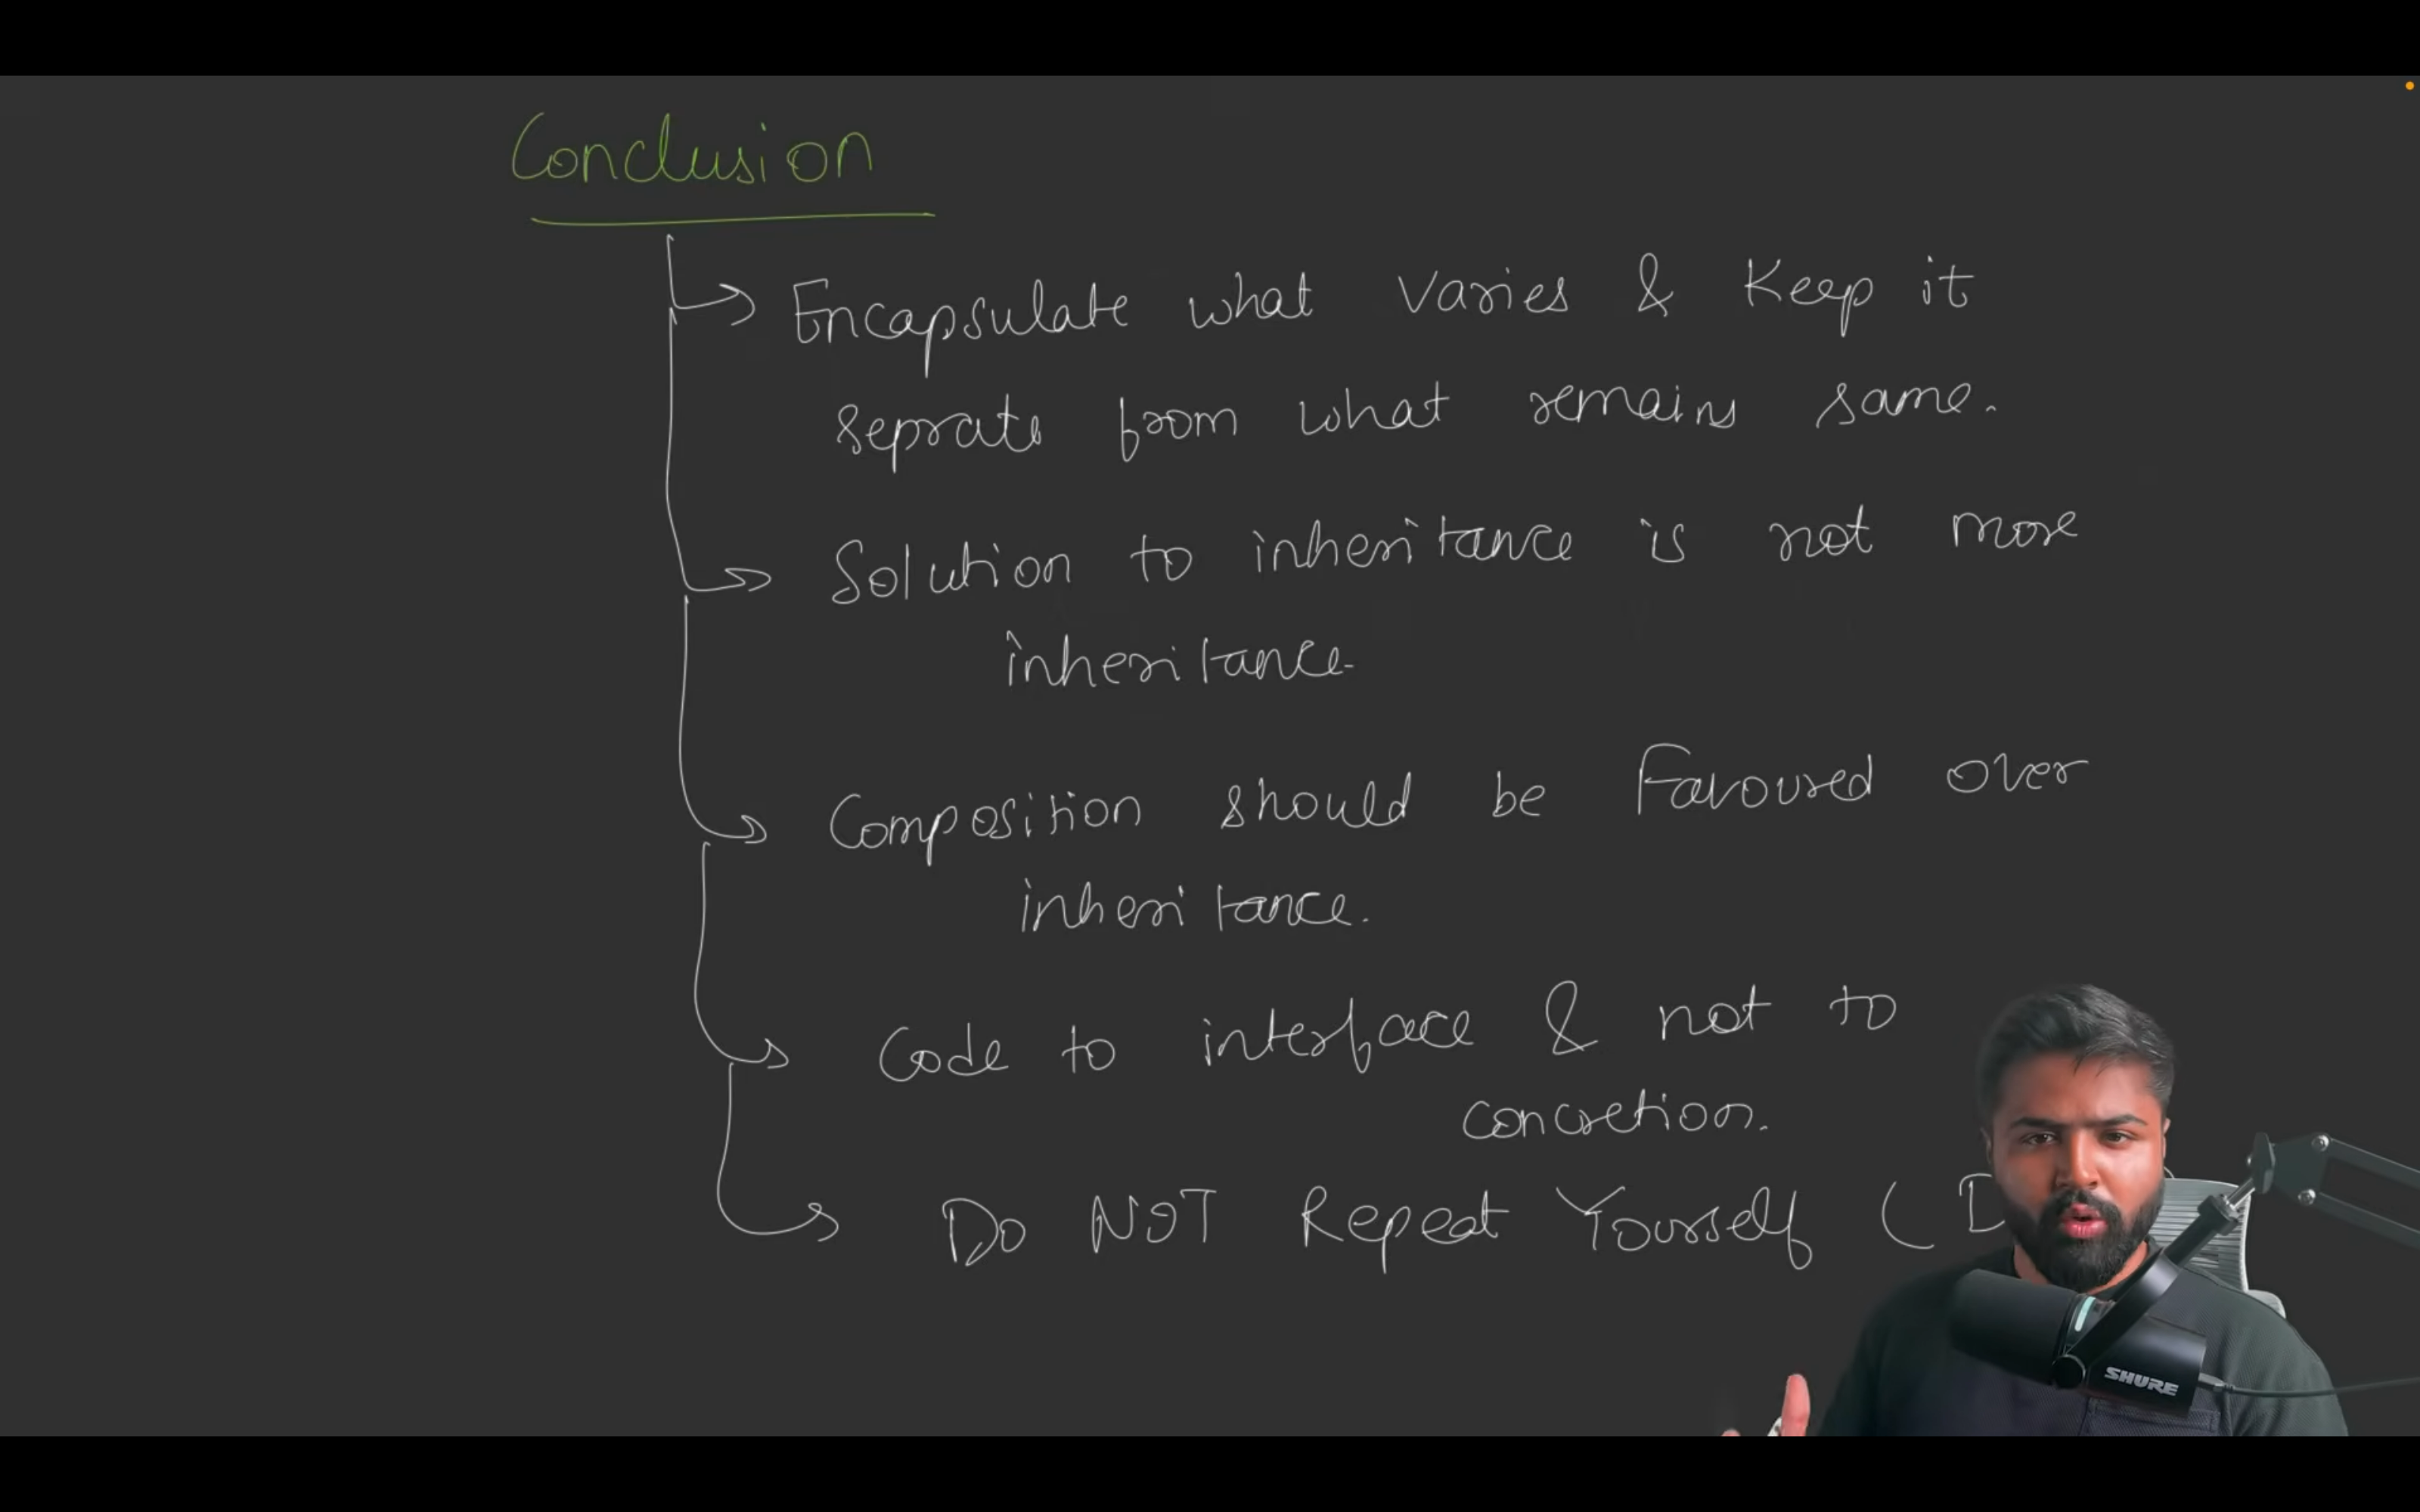 Conclusion
Encapsulate what varies & Keep it
seprate from what remains same.
Solution to inheritance is not more
inheritance.
Composition should be Favoured over
inheritance.
Code to interface & not to
concretion.
Do NOT Repeat Yourself ( D
SHURE